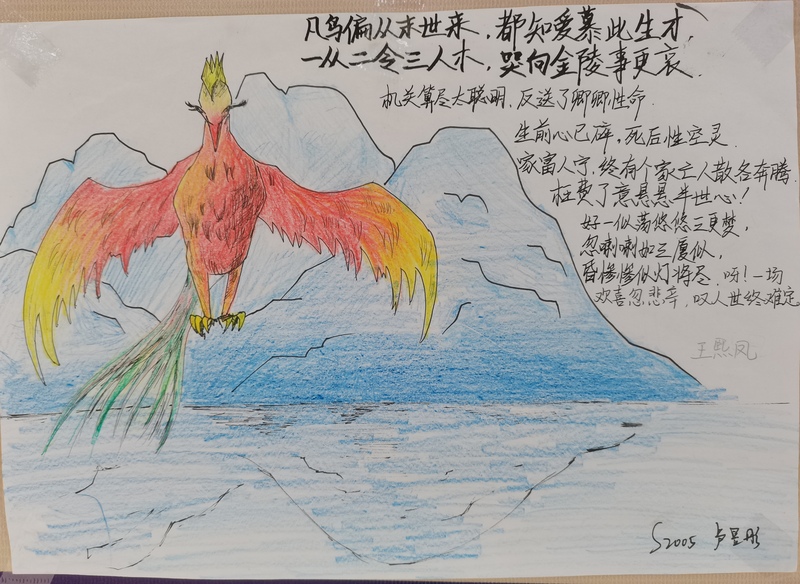 凡鸟偏从末世来，都知爱慕此生才，
一从二令三人木，哭向金陵事更哀．
机关算尽太聪明，反送了卿卿性命．
生前心已碎，死后性空灵．
家富人宁，终有个家亡人散各奔腾．
枉费了意悬悬半世心！
好一似荡悠悠三更梦，
忽喇喇如三厦似，
昏惨惨似灯将尽．呀！一场
欢喜忽悲辛．叹人世终难定
王熙凤
S2005 卢昱彤